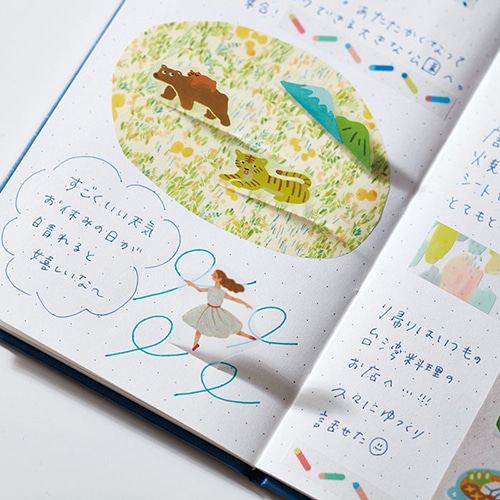 集合!
。あたたかくなって
クできる大きな公園へ。
すごくいい天気
お休みの日が
晴れると
嬉しいな〜
火
シート
とても
り帰りはいつもの
台湾料理の
お店へ…!!!
久々にゆっくり
話せた